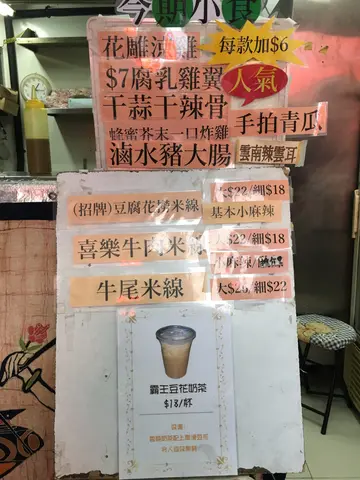 今期小食
花雕滷雞
每款加$6
$7腐乳雞翼
人氣
干蒜干辣骨
手拍青瓜
蜂蜜芥末一口炸雞
滷水豬大腸
雲南辣雲耳
(招牌)豆腐花滷米線
大$22/細$18
基本小麻辣
喜樂牛肉米線
大$22/細$18
牛尾米線
大$26/細$22
霸王豆花奶茶
$18/杯